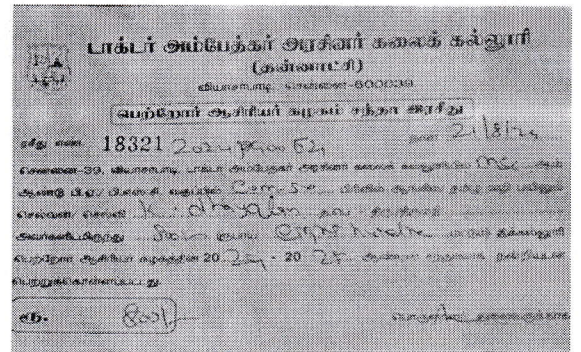 டாக்டர் அம்பேத்கர் அரசினர் கலைக் கல்லூரி
(தன்னாட்சி)
வியாசர்பாடி, சென்னை-600039
பெற்றோர் ஆசிரியர் கழகம் சந்தா ரசீது
ரசீது எண் 18321 நாள் 21/8/24
சென்னை-39, வியாசர்பாடி, டாக்டர் அம்பேத்கர் அரசினர் கலைக் கல்லூரியில் MSc ஆம்
ஆண்டு பி.ஏ/ பி.எஸ்.சி. வகுப்பில் Com.Sc பிரிவில் ஆங்கில தமிழ் வழி பயிலும்
செல்வன்/ செல்வி
அவர்களிடமிருந்து ரூபாய் Eight hundred மட்டும் இக்கல்லூரி
பெற்றோர் ஆசிரியர் கழகத்தின் 2024 - 2025 ஆண்டு சந்தாவாக நன்றியுடன்
பெற்றுக்கொள்ளப்பட்டது.
ரூ. 800/-